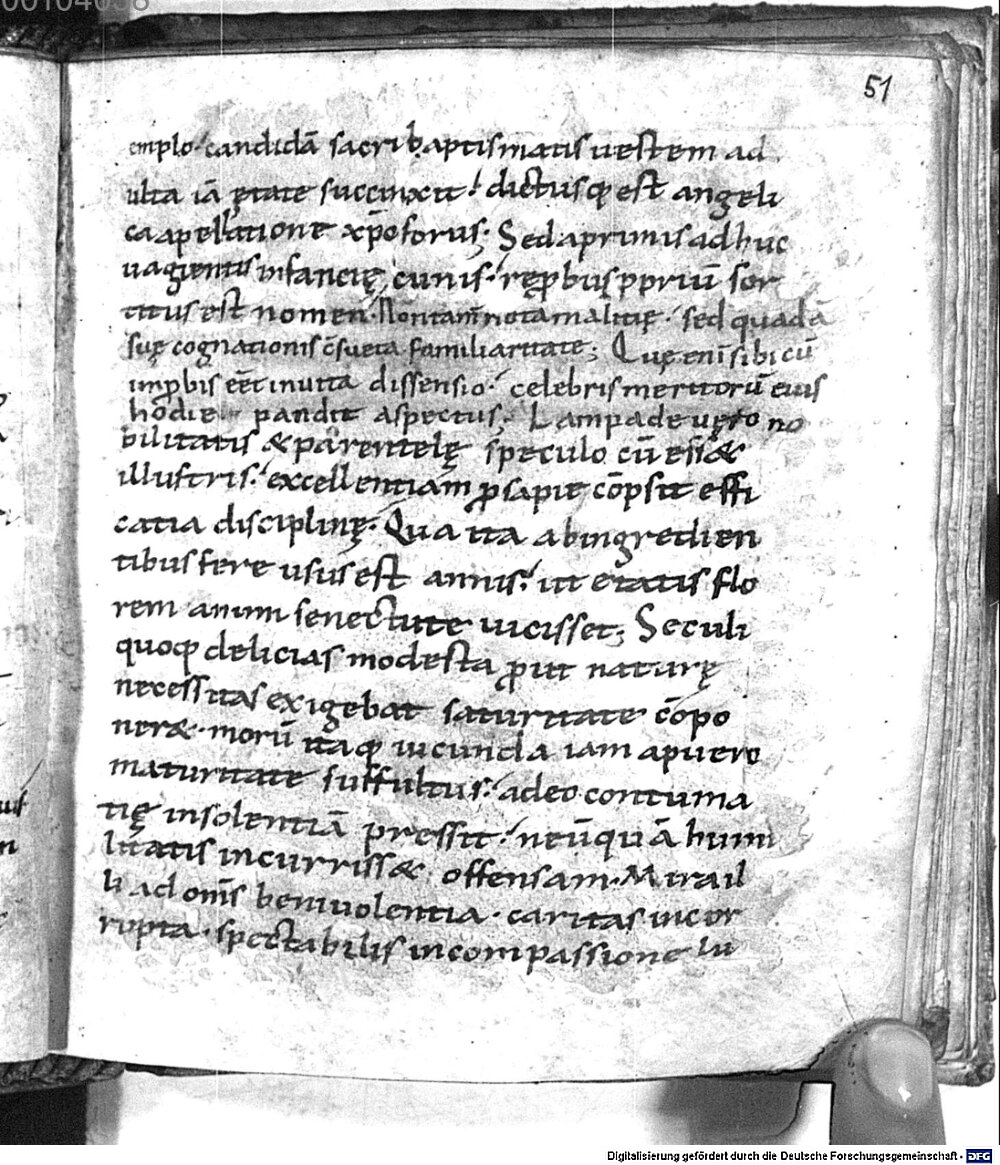 00104058
51
emplo· candidā sacri baptismatis uestem ad
ulta iā ętate succinxit! dictusq; est angeli
ca apellatione xp̄oforus; Sed a primis adhuc
uagientis infancię cunis· rępbus ꝓpriū sor
titus est nomen· Non tam nota malitię· sed quadā
suę cognationis c̄sueta familiaritate; Quę eni sibi cū
imꝓbis eēt inuita dissensio· celebris meritorū eius
hodie pandit aspectus; Lampade uero no
bilitatis & parentelę speculo cū essæ
illustris· excellentiam ꝓsapię cōpsit effi
catia disciplinę· Qua ita ab ingredien
tibus fere usus est annis· ut etatis flo
rem animi senectute uicisset; Seculi
quoq; delicias modesta ꝓut naturę
necessitas exigebat saturitate cōpo
neræ· morū itaq; iucunda iam a puero
maturitate suffultus· adeo contuma
tię insolentiā pressit· ne ūquā humi
litatis incurrissæ offensam· Mira il
li ad om̄s beniuolentia· caritas incor
rupta· spectabilis in compassione lu
Digitalisierung gefördert durch die Deutsche Forschungsgemeinschaft - DFG